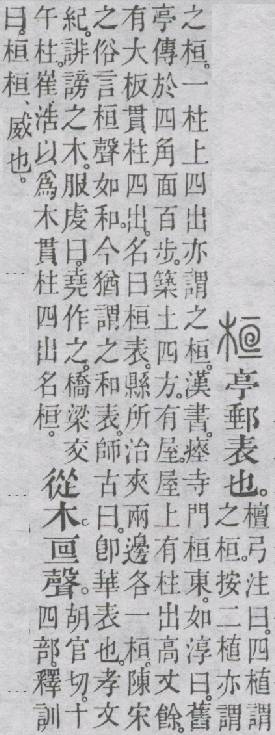 桓亭郵表也。檀弓注曰。四植謂
之桓。按二植亦謂
之桓。一柱上四出亦謂之桓。漢書。瘞寺門桓東。如淳曰。舊
亭傳於四角面百步。築土四方。有屋。屋上有柱出高丈餘。
有大板貫柱四出。名曰桓表。縣所治夾兩邊各一桓。陳宋
之俗言桓聲如和。今猶謂之和表。師古曰。卽華表也。孝文
紀。誹謗之木。服虔曰。堯作之。橋梁交
午柱。崔浩以爲木貫柱四出名桓。
從木。𠄢聲。胡官切。十
四部。釋訓
曰。桓桓、威也。